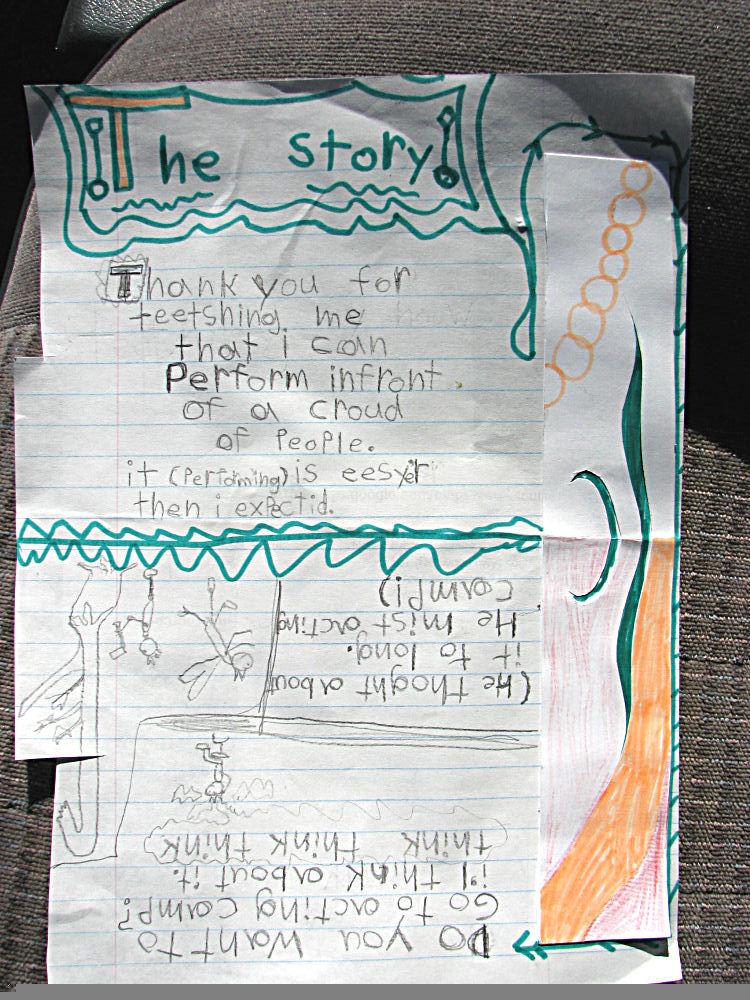 The story
Thank you for
teetshing me how
that i can
Perform infront
of a croud
of People.
it (Performing) is eesyer
then i expectid.
Do you want to
Go to acting camp?
i'l think about it.
think think think
(He thoght about
it to long.
He mist acting
camp!)